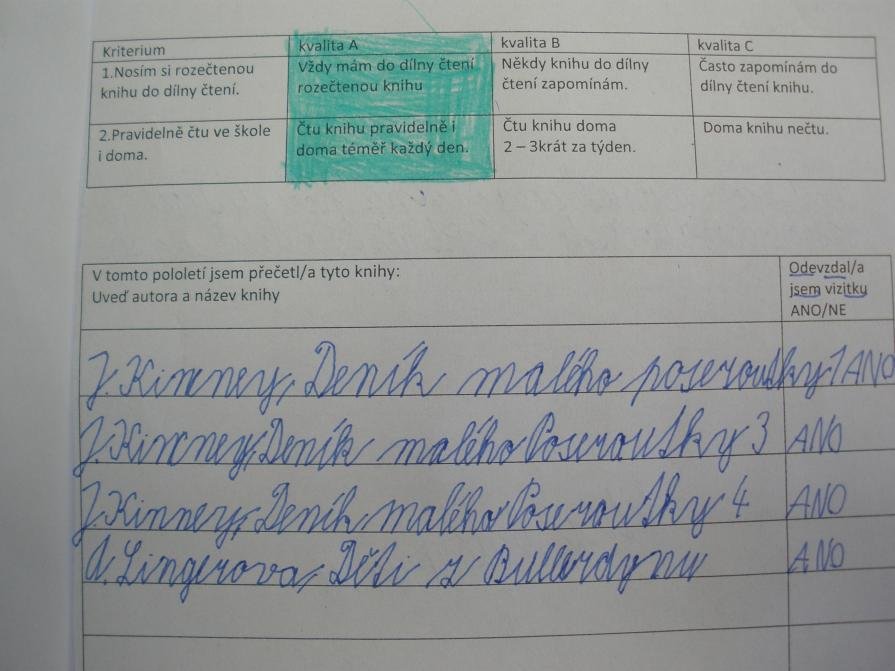 Kriterium kvalita A kvalita B kvalita C
1.Nosím si rozečtenou Vždy mám do dílny čtení Někdy knihu do dílny Často zapomínám do
knihu do dílny čtení. rozečtenou knihu čtení zapomínám. dílny čtení knihu.
2.Pravidelně čtu ve škole Čtu knihu pravidelně i Čtu knihu doma Doma knihu nečtu.
i doma. doma téměř každý den. 2 – 3krát za týden.
V tomto pololetí jsem přečetl/a tyto knihy: Odevzdal/a
Uveď autora a název knihy jsem vizitku
ANO/NE
J. Kinney, Deník malého poseroutky 1 ANO
J. Kinney, Deník malého Poseroutky 3 ANO
J. Kinney, Deník malého Poseroutky 4 ANO
A. Lingerova, Děti z Bullerdynu ANO